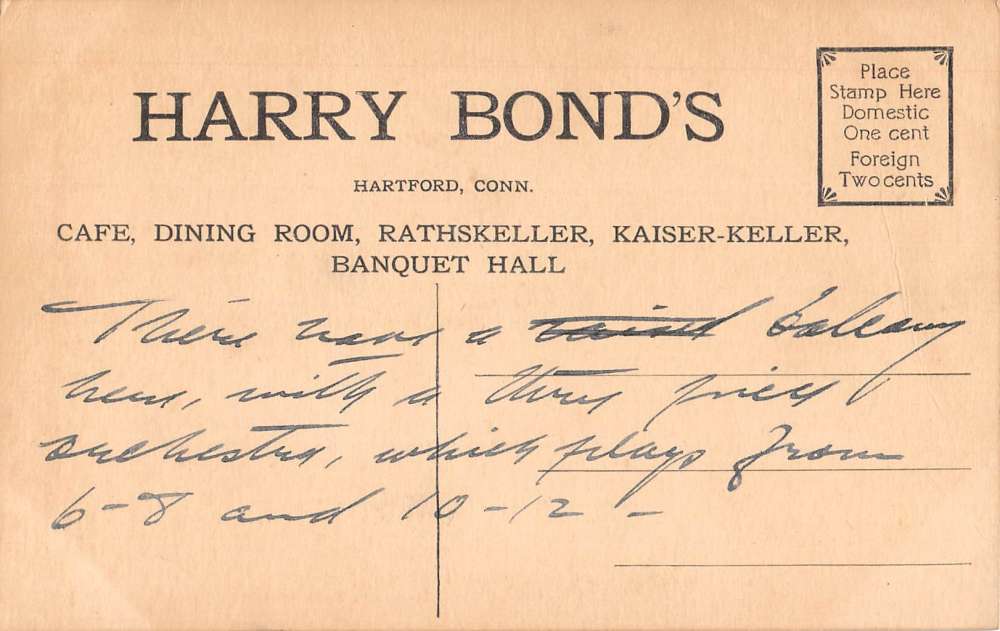 HARRY BOND'S
HARTFORD, CONN.
CAFE, DINING ROOM, RATHSKELLER, KAISER-KELLER,
BANQUET HALL
Place
Stamp Here
Domestic
One cent
Foreign
Two cents
There have a raised balcony
here, with a three piece
orchestra, which plays from
6-8 and 10-12 -